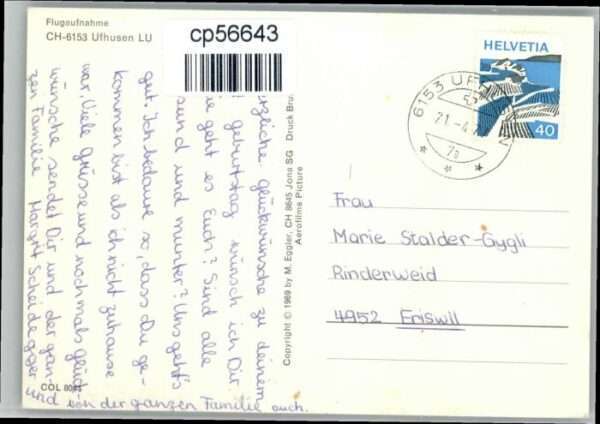 Flugaufnahme
CH-6153 Ufhusen LU
cp56643
HELVETIA
40
6153 UF
21.-4
rzliche Glückwünsche zu deinem
Geburtstag wünsch ich Dir
ie geht es Euch? Sind alle
sund und munter? Uns geht's
gut. Ich bedaure so, dass Du ge-
kommen bist als ich nicht zuhause
war. Viele Grüsse und nochmals Glück-
wünsche sendet Dir und der gan-
zen Familie Margrit Scheidegger
und von der ganzen Familie auch.
Copyright © 1969 by M. Eggler, CH 8645 Jona SG Druck Bru.
Aerofilms Picture
Frau
Marie Stalder-Gygli
Rinderweid
4952 Eriswil
COL